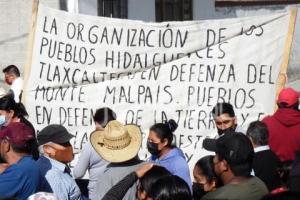 LA ORGANIZACIÓN DE LOS
PUEBLOS HIDALGUENCES
TLAXCALTECA EN DEFENZA DEL
MONTE MALPAIS. PUEBLOS
EN DEFENSA DE LA TIERRA Y E